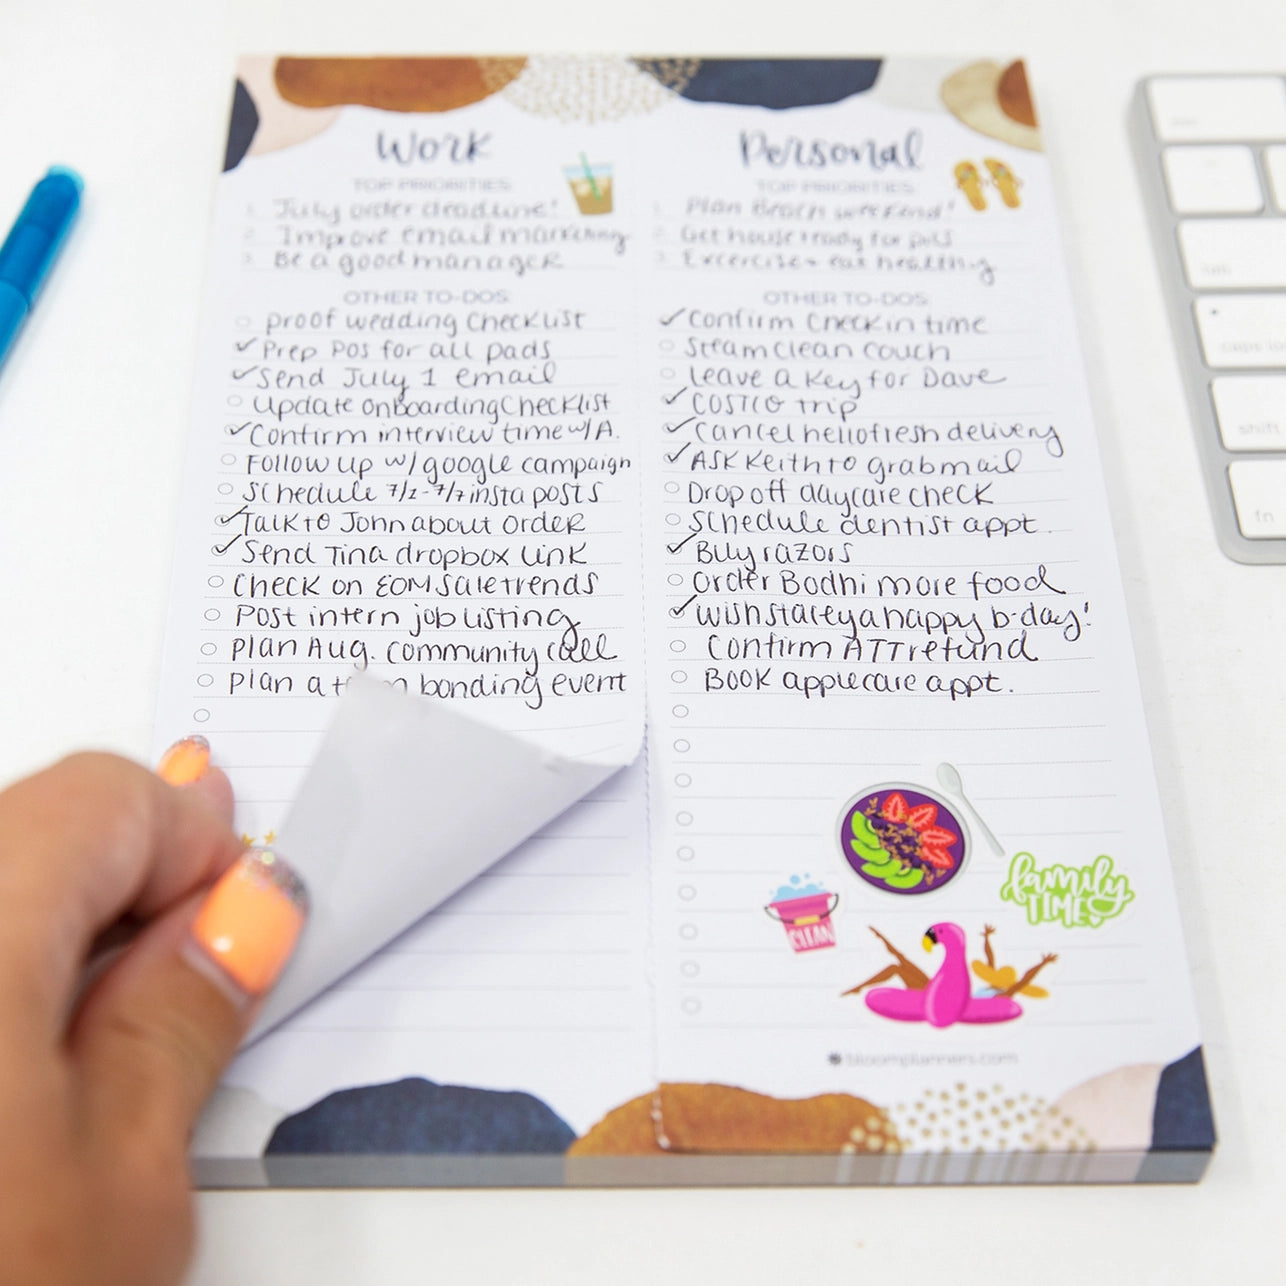 Work
TOP PRIORITIES:
1. July order deadline!
2. Improve email marketing
3. Be a good manager
OTHER TO-DOS:
proof wedding checklist
Prep POS for all pads
Send July 1 email
update onboarding checklist
Confirm interview time w/ A.
Follow up w/ google campaign
Schedule 7/2-7/7 insta posts
Talk to John about order
Send Tina dropbox link
Check on EOM sale trends
Post intern job listing
Plan Aug. community call
Plan a bonding event
Personal
TOP PRIORITIES:
1. Plan Beach weekend!
2. Get house ready for pics
3. Excercise + eat healthy
OTHER TO-DOS:
Confirm Check in time
Steam clean couch
leave a key for Dave
COSTCO trip
Cancel hellofresh delivery
ASK Keith to grab mail
Drop off daycare check
Schedule dentist appt.
Buy razors
Order Bodhi more food
wish stacey a happy b-day!
Confirm ATT refund
Book applecare appt.
CLEAN
family
TIME
bloomplanners.com
tab
caps lock
shift
fn